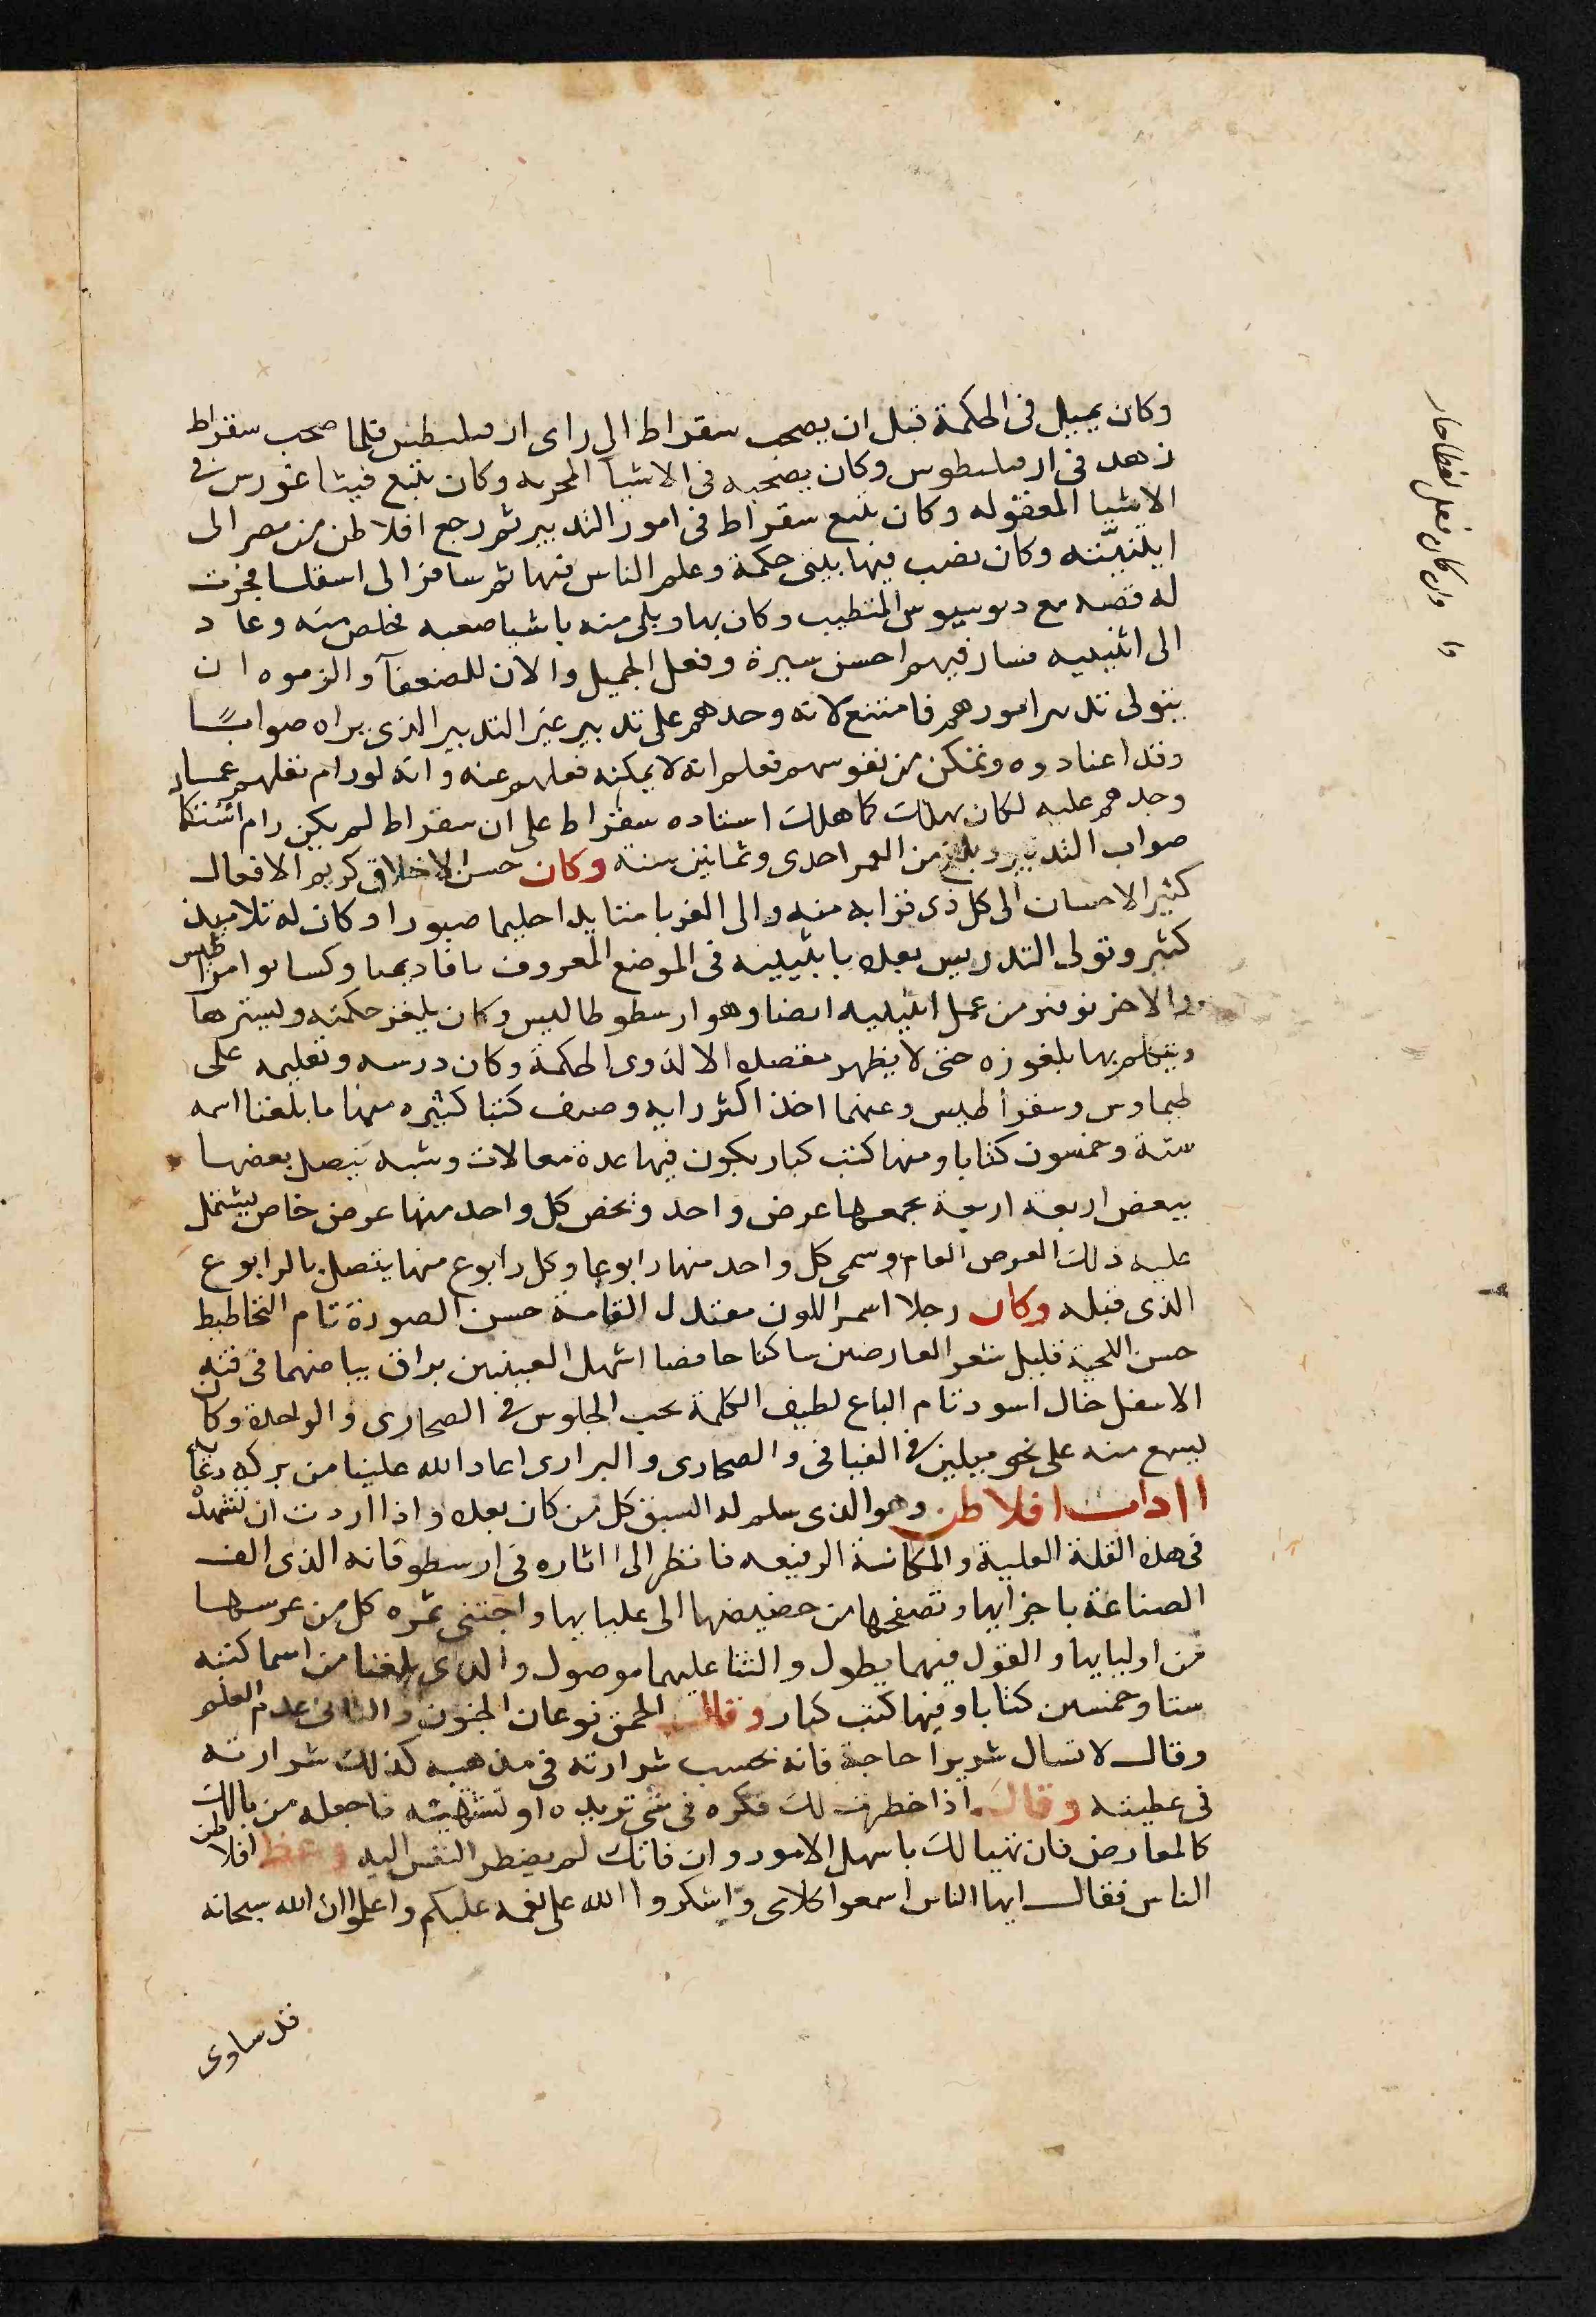 وكان يميل فى الحكمة قبل ان يصحب سقراط الى راى ارقليطس فلما صحب سقراط
زهد فى ارقليطوس وكان يصحبه فى الاشيا المحسه وكان يتبع فيثاغورس فى
الاشيا المعقوله وكان يتبع سقراط فى امور التدبير ثم رجع افلاطن من مصر الى
ايثنيّته وكان نصب فيها بيتى حكمة وعلم الناس فيها ثم سافر الى اسقليا فجرت
له قصه مع ديوسيوس المتطبب وكان بها وبلى منه باشيا صعبه فخلص منه وعاد
الى اثينيه فسار فيهم احسن سيرة وفعل الجميل والان للضعفآ والزموه ان
يتولى تدبير امورهم فامتنع لانه وجدهم على تدبير غير التدبير الذى يراه صوابًا
وقد اعتادوه وتمكن من نفوسهم فعلم انه لا يمكنه نقلهم عنه وانه لو رام نقلهم عما
وجدهم عليه لكان يهلك كما هلك استاده سقراط على ان سقراط لم يكن رام استكمال
صواب التدبير وبلغ من العمر احدى وثمانين سنه وكان حسن الاخلاق كريم الافعال
كثير الاحسان الى كل ذى قرابه منه والى الغربا متايدا حليما صبورا وكان له تلاميذ
كثير وتولى التدريس بعده باثينيه فى الموضع المعروف باقاديميا
والاخر نوفر من عمل اثينيه ايضا وهو ارسطوطاليس وكان يلغز حكمته ويسترها
ويتكلم بها ملغوزه حتى لا يظهر مقصده الا لذوى الحكمة وكان درسه وتعليمه على
طيماوس وسقراطيس وعنهما اخذ اكثر رايه وصنف كتبا كثيره منها ما بلغنا اسمه
ستة وخمسون كتابا ومنها كتب كبار يكون فيها عدة مقالات وكتبه يتصل بعضها
ببعض اربعة اربعة يجمعها عرض واحد ويخص كل واحد منها عرض خاص يشتمل
عليه ذلك العرض العام وسمى كل واحد منها رابوعا وكل رابوع منها يتصل بالرابوع
الذى قبله وكان رجلا اسمر اللون معتدل القامة حسن الصورة تام التخاطيط
حسن اللحية قليل شعر العارضين ساكنا خافضا اشهل العينين براق بياضهما فى ذقنه
الاسفل خال اسود تام الباع لطيف الكلمة يحب الجلوس فى الصحارى والوحدة وكان
يسمع منه على نحو ميلين فى الفيافى والصحارى والبرارى اعاد الله علينا من بركة دعائه
اداب افلاطن وهو الذى سلم له السبق كل من كان بعده واذا اردت ان تشهد
فى هذه القلة العلية والمكانة الرفيعه فانظر الى اثاره فى ارسطو فانه الذى الف
الصناعة باجزايها وتصفحها من حضيضها الى عليايها واجتنى ثمره كل من غرسها
من اوليايها والقول فيهما يطول والثنا عليهما موصول والذى بلغنا من اسما كتبه
ستا وخمسين كتابا وفيها كتب كبار وقال الحمق نوعان الجنون والثانى عدم العلم
وقال لا تسال شريرا حاجة فانه بحسب شرارته فى مذهبه كذلك شرارته
فى عطيته وقال اذا خطرت لك فكره فى شى تريده او تشتهيه فاجعله من بالك
كالمعارض فان تهيا لك باسهل الامور وان فاتك لم يضطر النفس اليه وعظ افلاطن
الناس فقال ايها الناس اسمعوا كلامى واشكروا الله على نعمه عليكم واعلموا ان الله سبحانه
قد ساوى